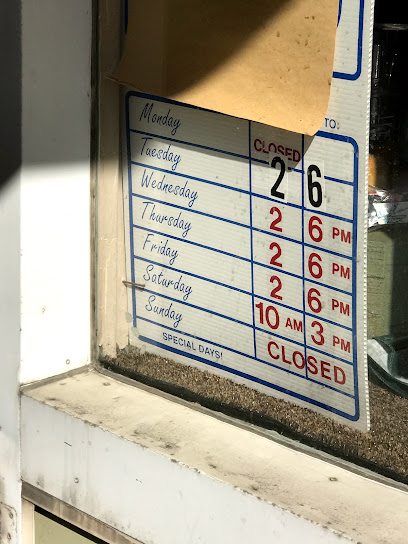 TO:
Monday CLOSED
Tuesday 2 6
Wednesday 2 6 PM
Thursday 2 6 PM
Friday 2 6 PM
Saturday 10 AM 3 PM
Sunday CLOSED
SPECIAL DAYS!